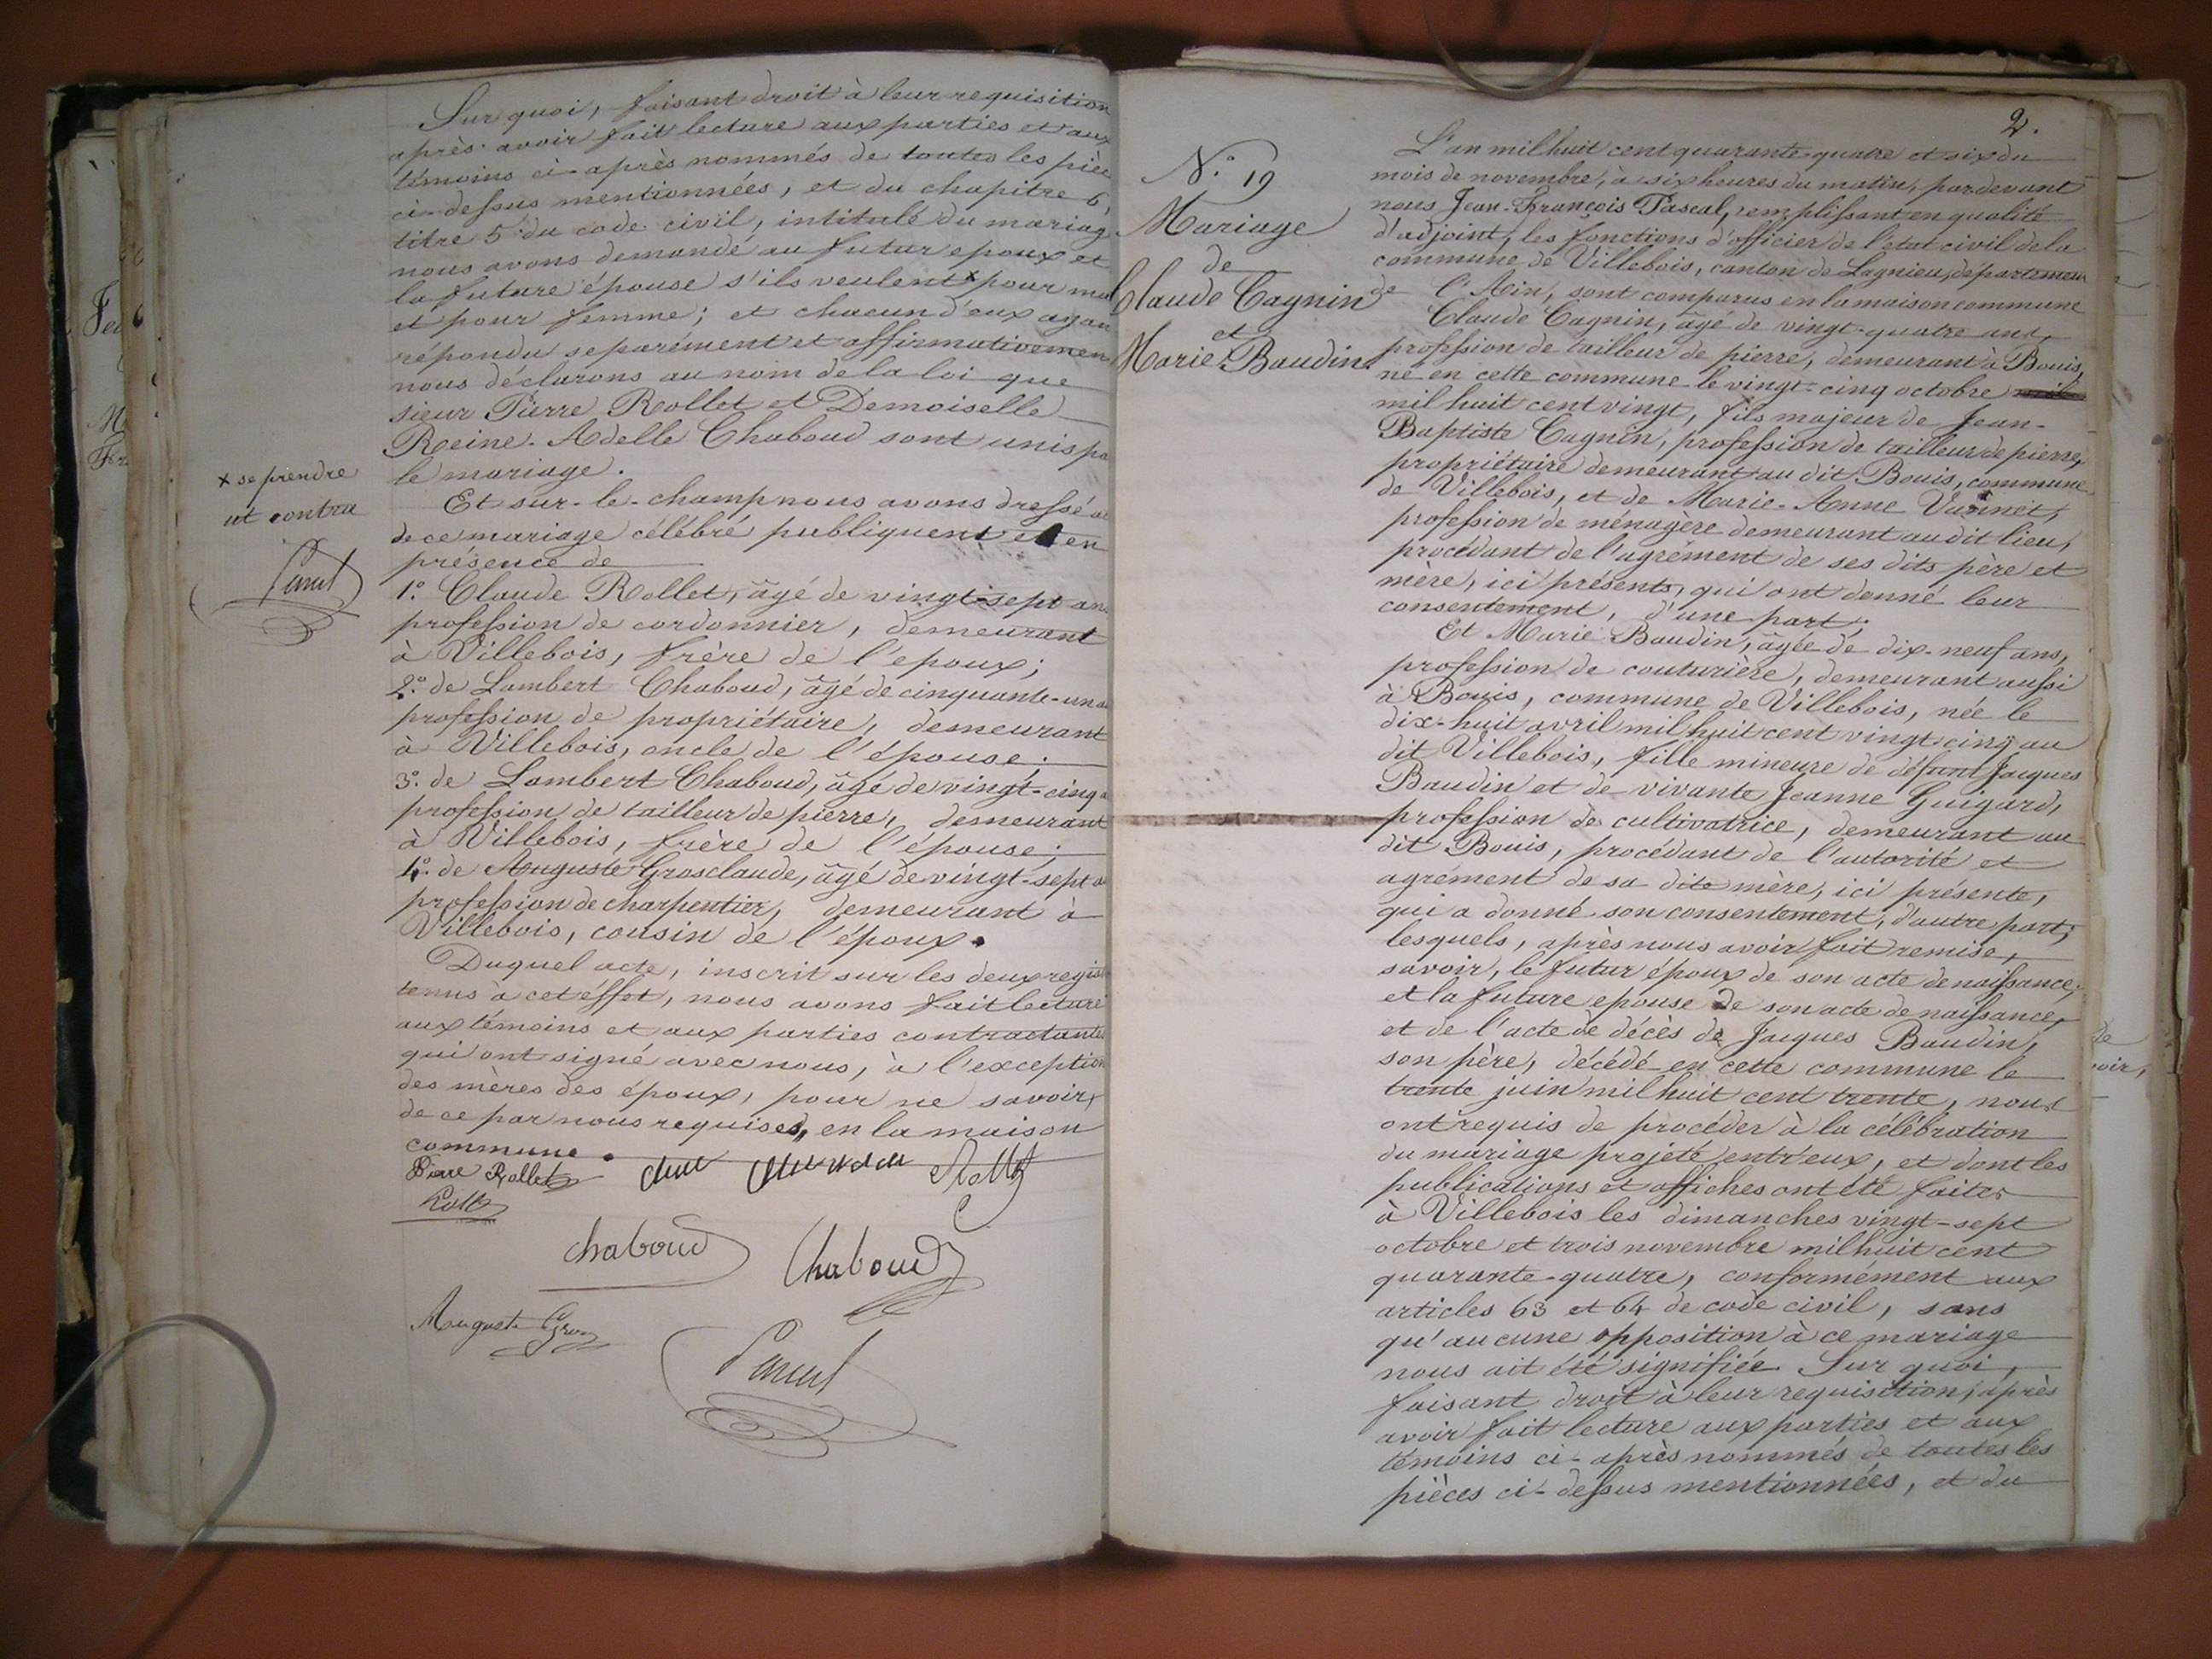 Sur quoi, faisant droit à leur requisition
après avoir fait lecture aux parties et aux
témoins ci-après nommés de toutes les piè
ci-dessus mentionnées, et du chapitre 6,
titre 5 du code civil, intitulé du mariag
nous avons demandé au futur epoux et
la future épouse s'ils veulent x pour ma
et pour femme; et chacun d'eux ayan
répondu separément et affirmativemen
nous déclarons au nom de la loi que
sieur Pierre Rollet et Demoiselle
Reine-Adelle Chaboud sont unis pa
le mariage.
x se prendre
ut contra
Et sur-le-champ nous avons dressé ac
de ce mariage célébré publiquent et en
présence de
1.° Claude Rollet, âgé de vingt-sept an
profession de cordonnier, demeurant
à Villebois, frère de l'epoux;
2.° de Lambert Chaboud, âgé de cinquante-un a
profession de propriétaire, demeurant
à Villebois, oncle de l'épouse;
3.° de Lambert Chaboud, âgé de vingt-cinq a
profession de tailleur de pierre, demeurant
à Villebois, frère de l'épouse;
4.° de Auguste Grosclaude, âgé de vingt-sept a
profession de charpentier, demeurant à
Villebois, cousin de l'époux.
Duquel acte, inscrit sur les deux regis
tenus à cet éffet, nous avons fait lecture
aux témoins et aux parties contractantes
qui ont signé avec nous, à l'exception
des mères des époux, pour ne savoir,
de ce par nous requises, en la maison
commune.
Pierre Rollet
Rollet
chaboud Chaboud
Auguste Gros
2.
N.° 19
Mariage
de
Claude Cagnin
et
Marie Baudin
L'an mil huit cent quarante-quatre et six du
mois de novembre, à six heures du matin, pardevant
nous Jean-François Pascal, remplissant en qualité
d'adjoint, les fonctions d'officier de l'état civil de la
commune de Villebois, canton de Lagnieu, département
de l'Ain, sont comparus en la maison commune
Claude Cagnin, âgé de vingt-quatre ans,
profession de tailleur de pierre, demeurant à Bouis,
né en cette commune le vingt-cinq octobre mil
mil huit cent vingt, fils majeur de Jean-
Baptiste Cagnin, profession de tailleur de pierre,
propriétaire demeurant au dit Bouis, commune
de Villebois, et de Marie-Anne
profession de ménagère demeurant au dit lieu,
procédant de l'agrément de ses dits père et
mère, ici présents, qui ont donné leur
consentement, d'une part;
Et Marie Baudin, âgée de dix-neuf ans,
profession de couturière, demeurant aussi
à Bouis, commune de Villebois, née le
dix-huit avril mil huit cent vingt cinq au
dit Villebois, fille mineure de défunt Jacques
Baudin et de vivante Jeanne Guigard,
profession de cultivatrice, demeurant au
dit Bouis, procédant de l'autorité et
agrément de sa dite mère, ici présente,
qui a donné son consentement, d'autre part;
lesquels, après nous avoir fait remise,
savoir, le futur époux de son acte de naissance;
et la future epouse de son acte de naissance,
et de l'acte de décès de Jacques Baudin,
son père, décédé en cette commune le
trente juin mil huit cent trente, nous
ont requis de procéder à la célébration
du mariage projeté entr'eux, et dont les
publications et affiches ont été faites
à Villebois les dimanches vingt-sept
octobre et trois novembre mil huit cent
quarante-quatre, conformément aux
articles 63 et 64 de code civil, sans
qu'aucune opposition à ce mariage
nous ait été signifiée. Sur quoi,
faisant droit à leur requisition, après
avoir fait lecture aux parties et aux
témoins ci-après nommés de toutes les
pièces ci-dessus mentionnées, et du